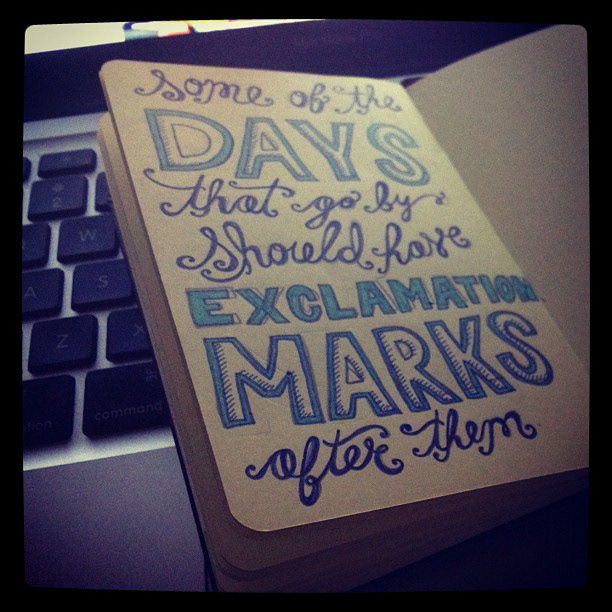 some of the
DAYS
that go by
should have
EXCLAMATION
MARKS
after them
2
W
A
S
Z
X
command